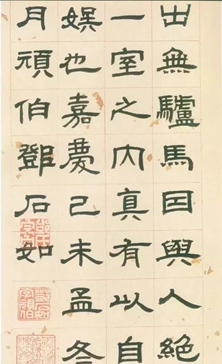 出無驢馬因與人絕
一室之內真有以自
娛也嘉慶己未孟冬
月頑伯鄧石如